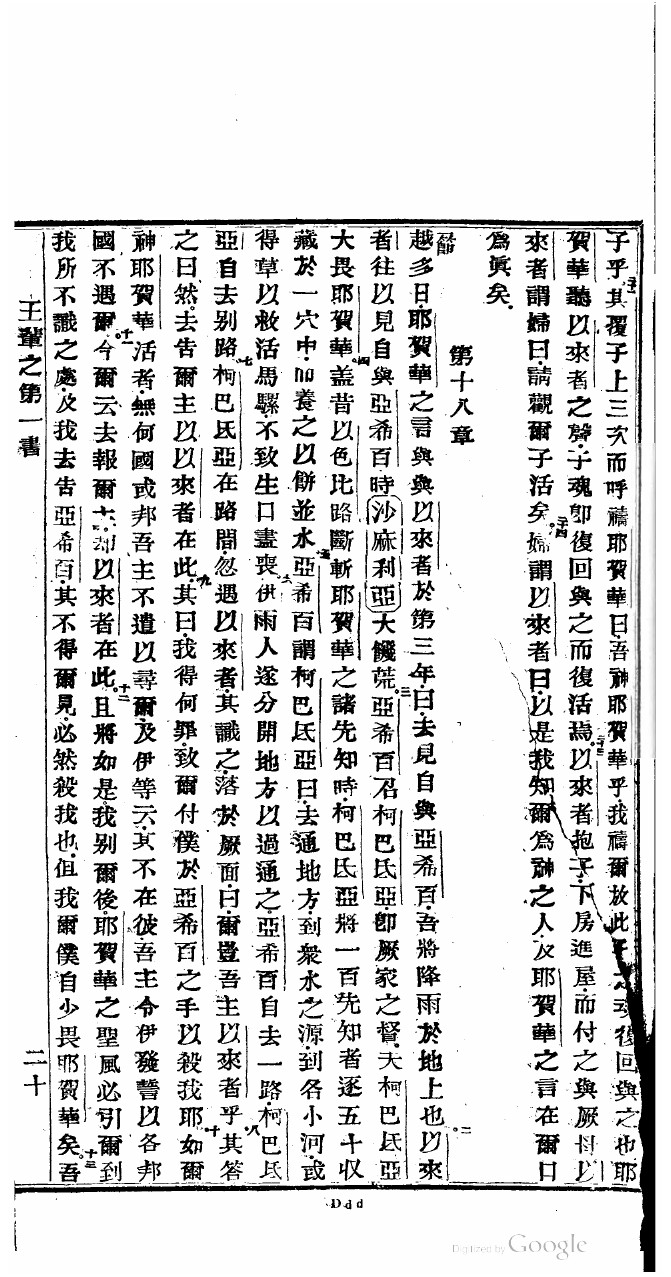 子乎。其覆子上三次而呼禱耶賀華曰吾神耶賀華乎我禱爾放此子之魂復回與之也耶
賀華聽以來者之聲子魂卽復回與之而復活焉以來者抱子下房進屋而付之與厥母以
來者謂婦曰請觀爾子活矣婦謂以來者曰以是我知爾爲神之人及耶賀華之言在爾口
爲眞矣
第十八章
越多日耶賀華之言與以來者於第三年曰去見自與亞希百吾將降雨於地上也以來
者往以見自與亞希百時沙麻利亞大饑荒亞希百召柯巴氐亞卽厥家之督夫柯巴氐亞
大畏耶賀華蓋昔以色比路斷斬耶賀華之諸先知時柯巴氐亞將一百先知者逐五十収
藏於一穴中而養之以餅並水亞希百謂柯巴氐亞曰去通地方到衆水之源到各小河或
得草以救活馬騾不致生口盡喪伊兩人遂分開地方以過通之亞希百自去一路柯巴氐
亞自去别路柯巴氐亞在路間忽遇以來者其識之落於厥面曰爾豈吾主以來者乎其答
之曰然去告爾主以以來者在此其曰我得何罪致爾付僕於亞希百之手以殺我耶如爾
神耶賀華活者無何國或邦吾主不遣以尋爾及伊等云其不在彼吾主令伊發誓以各邦
國不遇爾今爾云去報爾主却以來者在此且將如是我别爾後耶賀華之聖風必引爾到
我所不識之處及我去告亞希百其不得爾見必然殺我也但我爾僕自少畏耶賀華矣吾
王輩之第一書
二十
Ddd
Digitized by Google